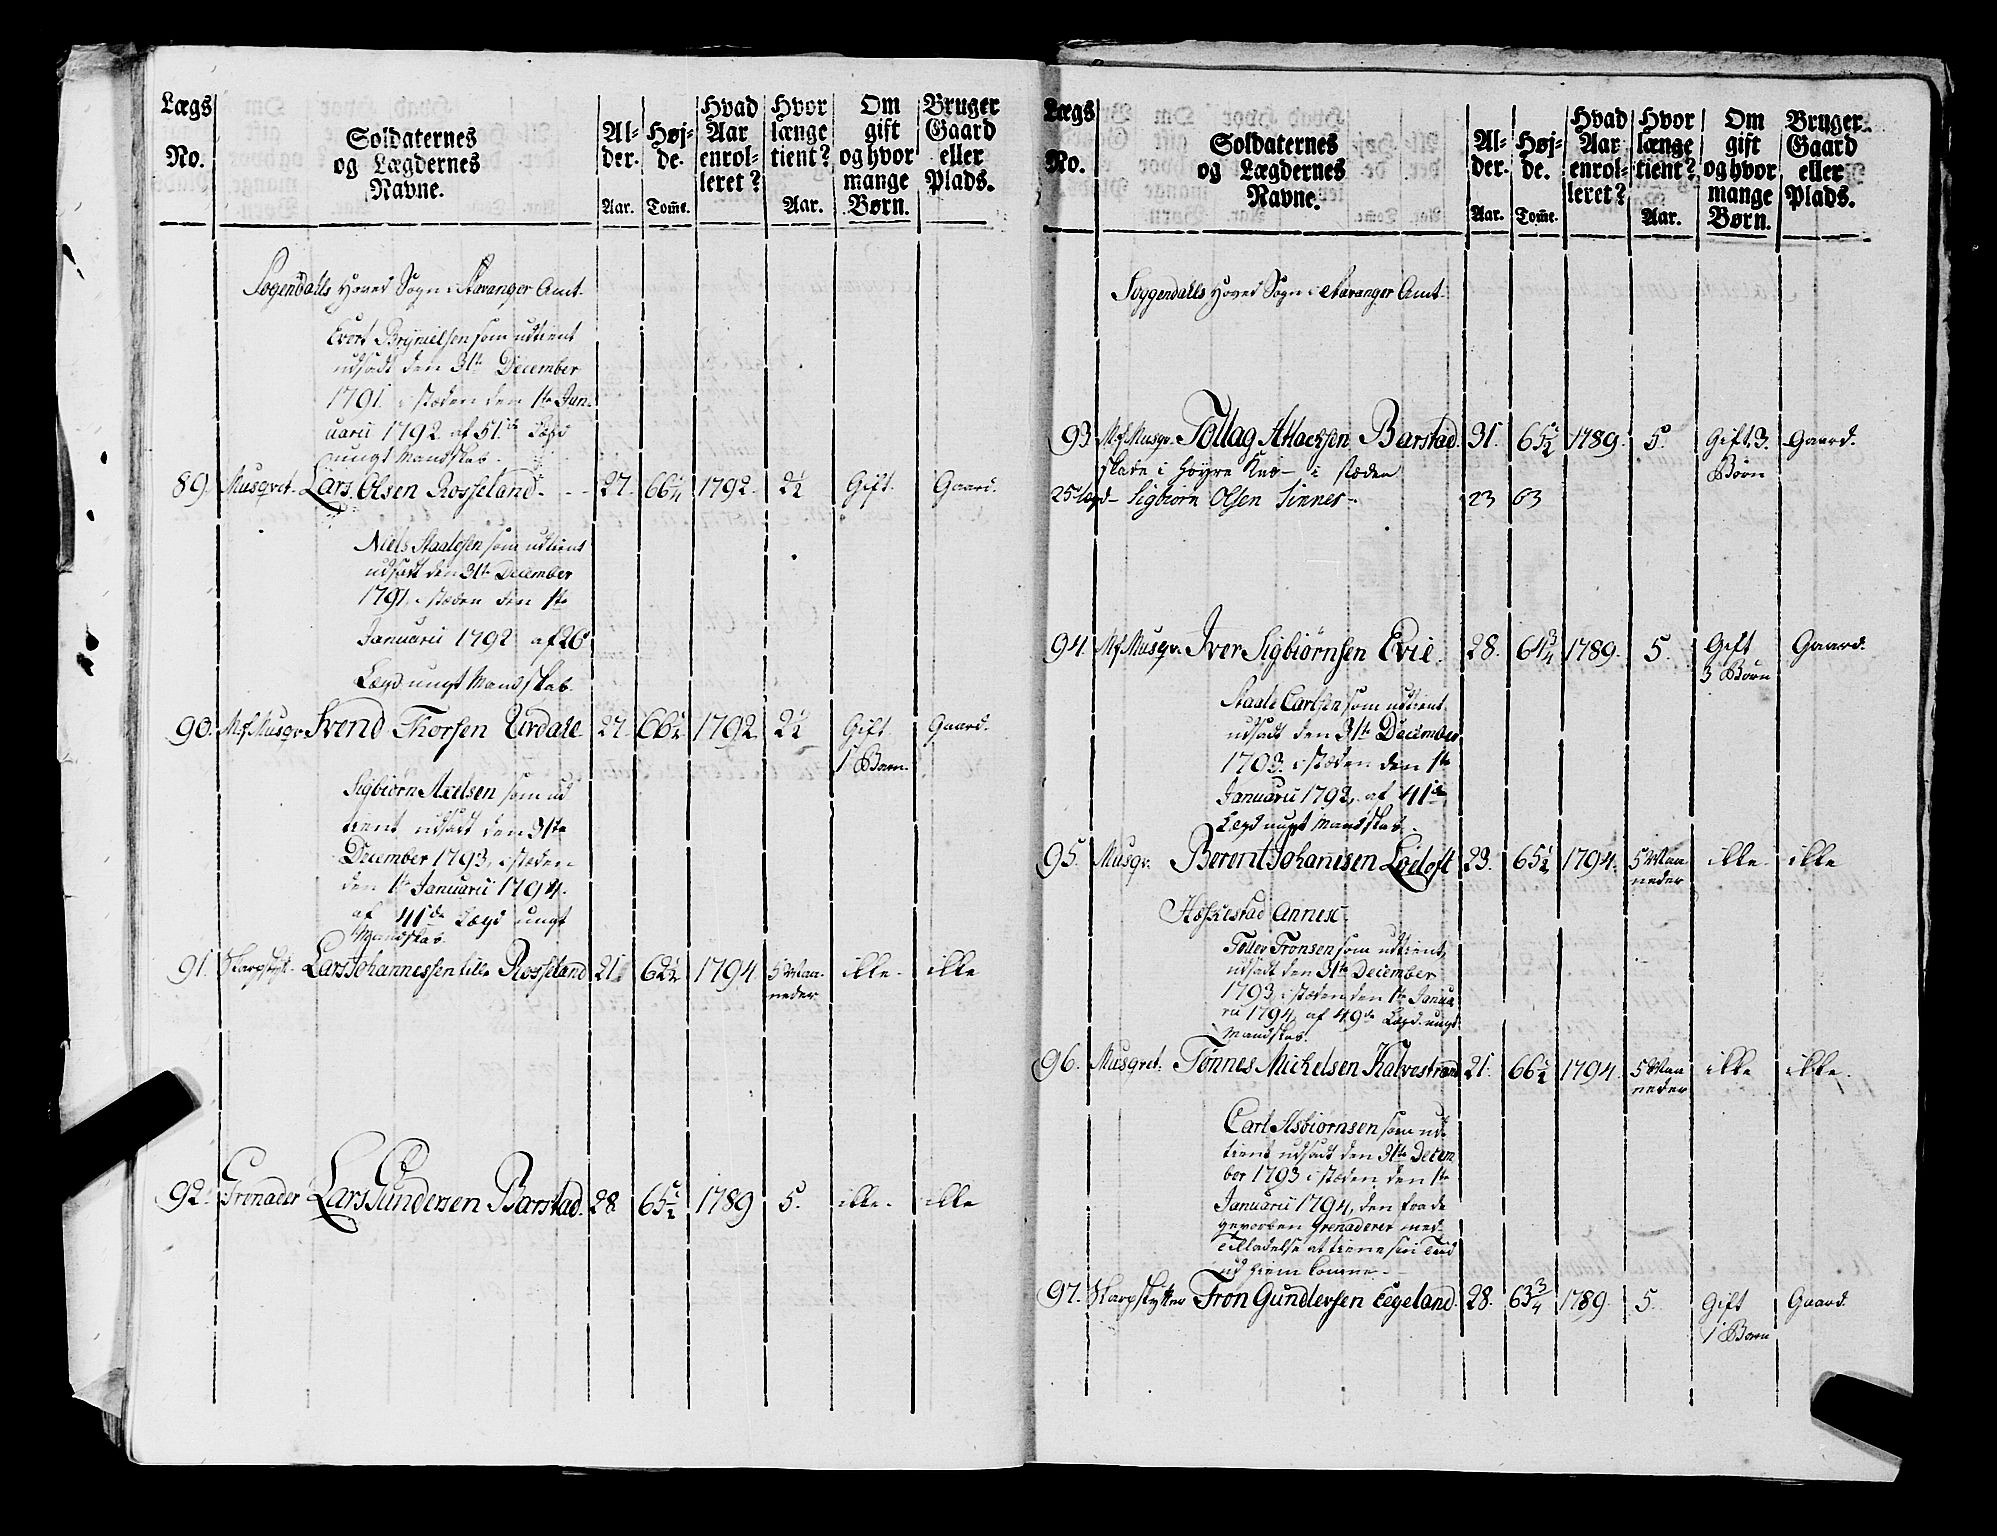 Lægs No. Soldaternes og Lægdernes Navne. Al- der. Aar. Høj- de. Tom̅e. Hvad Aar enrol- leret? Hvor længe tient? Aar. Om gift og hvor mange Børn. Bruger Gaard eller Plads.
Sogendahls Hoved Sogn i Stavanger Amt.
Evert Brynielsen som udtient
udsadt den 31te December
1791. i stæden den 1te Jan-
uarii 1792 af 51de Lægd
ungt Mandskab.
89. Musqvet. Lars Olsen Rosseland. 27. 66 1/4 1792. 2 1/2 Gift. Gaard.
Niels Staalesen som udtient
udsadt den 31te December
1791. i stæden den 1te
Januarii 1792 af 26
Lægd ungt Mandskab.
90. Mf. Musqv. Svend Thorsen Urdale 27. 66 1/2 1792. 2 1/2 Gift Gaard.
1 Barn.
Sigbiørn Axelsen som ud
tient udsadt den 31te
December 1793, i stæden
den 1te Januarii 1794.
af 41de Lægd ungt
Mandskab.
91. Skarpskyt. Lars Johannessen lille Rosseland 21. 62 1/2 1794 5 Maa- ikke. ikke
neder
92. Grenader Lars Gundersen Barstad. 28. 65 1/2 1789 5. ikke. ikke
Lægs No. Soldaternes og Lægdernes Navne. Al- der. Aar. Høj- de. Tom̅e. Hvad Aar enrol- leret? Hvor længe tient? Aar. Om gift og hvor mange Børn. Bruger Gaard eller Plads.
Soggendalls Hoved Sogn i Stavanger Amt.
93 Mf. Musqv. Tollag Atlacksen Barstad. 31. 65 1/2 1789. 5. Gift. 3. Gaard.
skade i Høyre Knæ - i stæden Børn
25 Lægd - Sigbiørn Olsen Sinnes - 23 63
94. Mf. Musqv. Iver Sigbiørnsen Evie. 28. 64 3/4 1789. 5. Gift Gaard.
3 Børn
Staale Carlsen som udtient
udsadt den 31te December
1793. i stæden den 1te
Januarii 1793, af 41de
Lægd ungt Mandskab.
95. Musqv. Berent Johannsen Løeloft 23. 65 1/2 1794. 5 Maa ikke. ikke
neder
Hæskestad Annex
Toller Tronsen som udtient,
udsadt den 31te December
1793, i stæden den 1te Janua
rii 1794, af 49de Lægd. ungt
Mandskab.
96. Musqvet. Tønnes Mickelsen Kalvestrand 21. 66 1/2 1794. 5 Maa ikke ikke.
neder
Carl Asbiørnsen som ud-
tient udsadt den 31te Decem
ber 1793 i stæden den 1te
Januarii 1794, den fra de
gevorben Grenaderer med
Tilladelse at tiene sin Tiid
ud hiem komne -
97. Skarpskytter Tron Gundersen Eegeland. 28. 63 3/4 1789. 5. Gift Gaard.
1 Barn